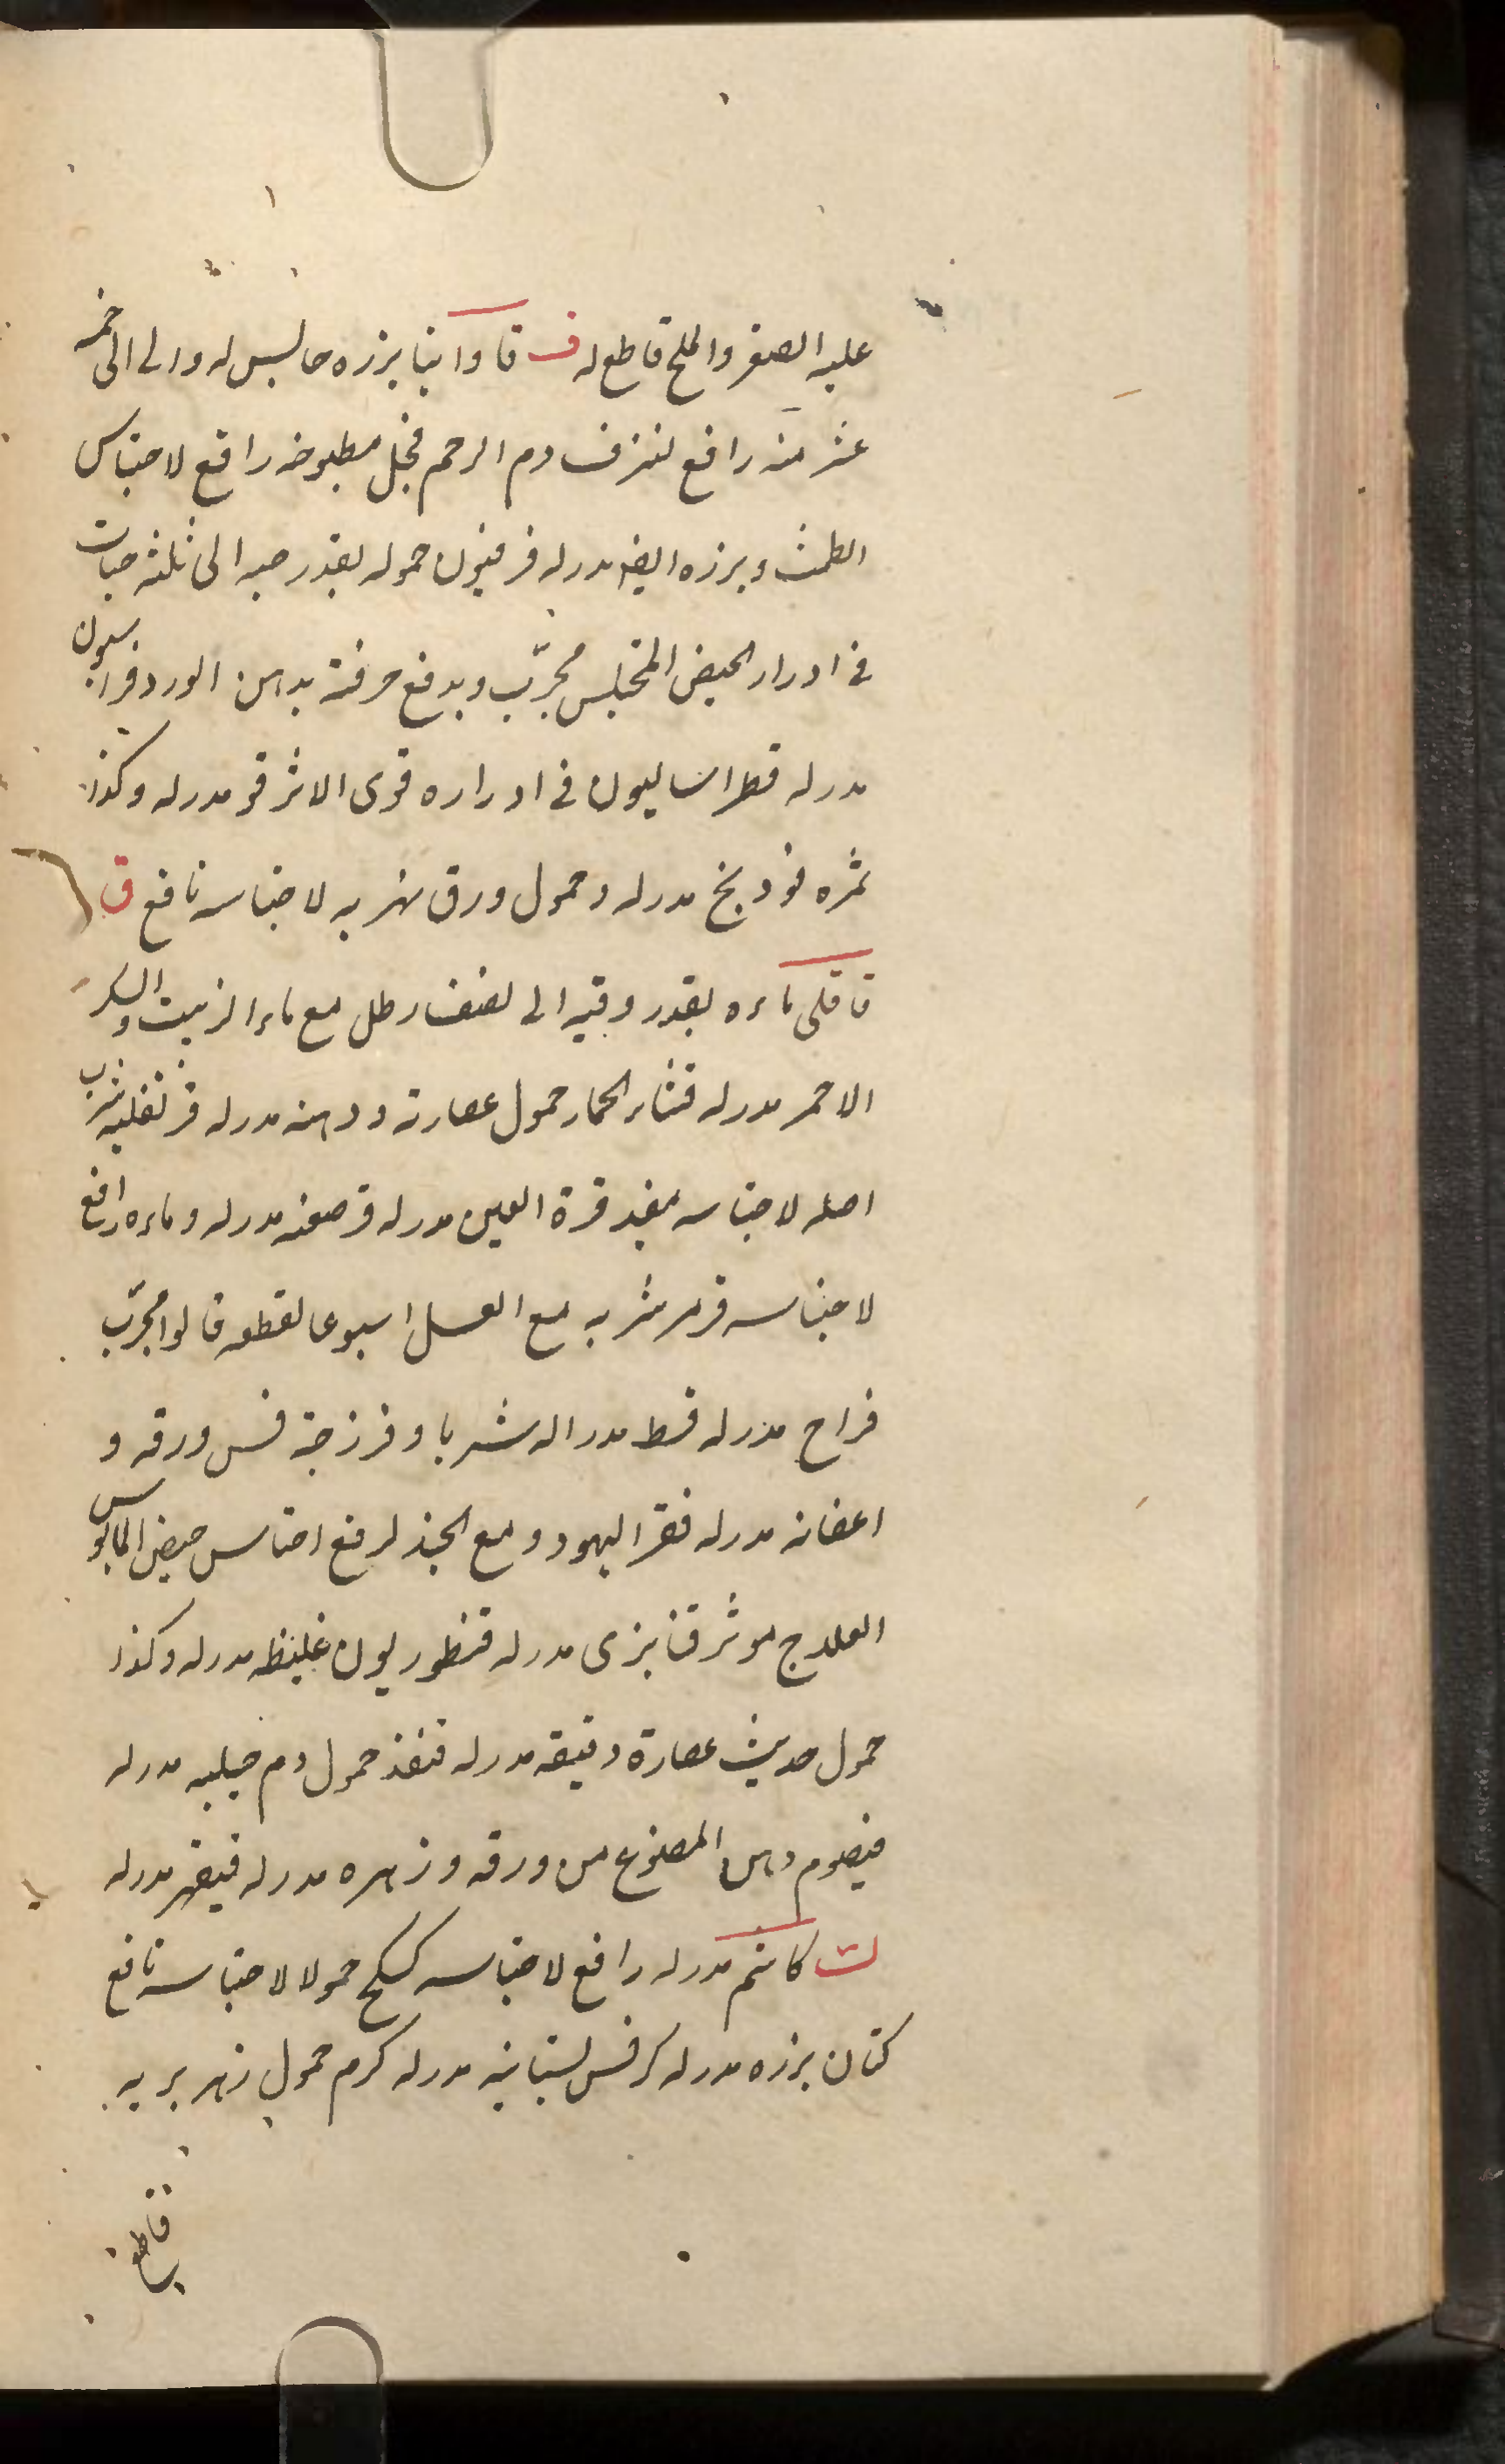 عليه الصفر والملح قاطع له ف فاوانيا بزره حابس له والى الى خمسه
عشر منه رافع لنزف دم الرحم فجل مطبوخه رافع لاحتباس
الطمث وبزره ايضا مدر له فرفيون حموله بقدر حبه الى ثلثه حبات
فى ادرار الحيض المحتبس مجرّب ويدفع حرقته بدهن الورد فراسيون
مدر له فطراساليون فى ادراره قوى الاثر فو مدر له وكذا
ثمره فودنج مدر له وحمول ورق نهريه لاحتباسه نافع ق
قاقلى ماءه بقدر وقيه الى نصف رطل مع ماء الزبيب والسكر
الاحمر مدر له قثاء الحمار حمول عصارته ودهنه مدر له قرنفليه شرب
اصله لاحتباسه مفيد قرة العين مدر له قرصعنه مدر له وماءه رافع
لاحتباسه قرمز شربه مع العسل اسبوعا لقطعه قالوا مجرّب
مدر له قسط مدر اله شربا وفرزجة قس ورقه و
اغصانه مدر له قفر اليهود ومع الجند لرفع احتباس حيض المايوس
العلاج موثر قنا برى مدر له قنطوريون غليظه مدر له وكذا
حمول حديث عصارة دقيقه مدر له قنفذ حمول دم جبليه مدر له
قيصوم دهن المصنوع من ورقه وزهره مدر له قيقهر مدر له
ك كاشم مدر له رافع لاحتباسه كسكج حمولا لاحتباسه نافع
كتان بزره مدر له كرفس بستانيه مدر له كرم حمول زهر بريه
قاطع